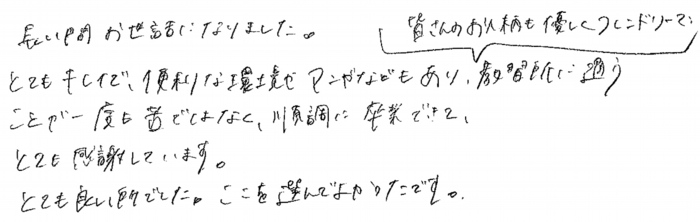 長い間お世話になりました。
皆さんのお人柄も優しくフレンドリーで
とてもキレイで、便利な環境でマンガなどもあり、教習所に通う
ことが一度も苦ではなく、順調に卒業できて、
とても感謝しています。
とても良い所でした。ここを選んでよかったです。